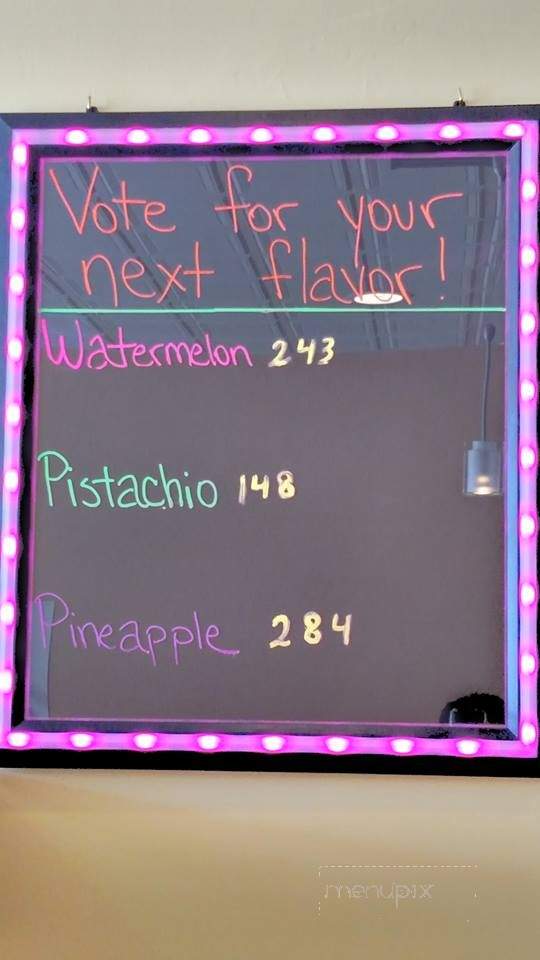 Vote for your
next flavor!
Watermelon 243
Pistachio 148
Pineapple 284
menupix